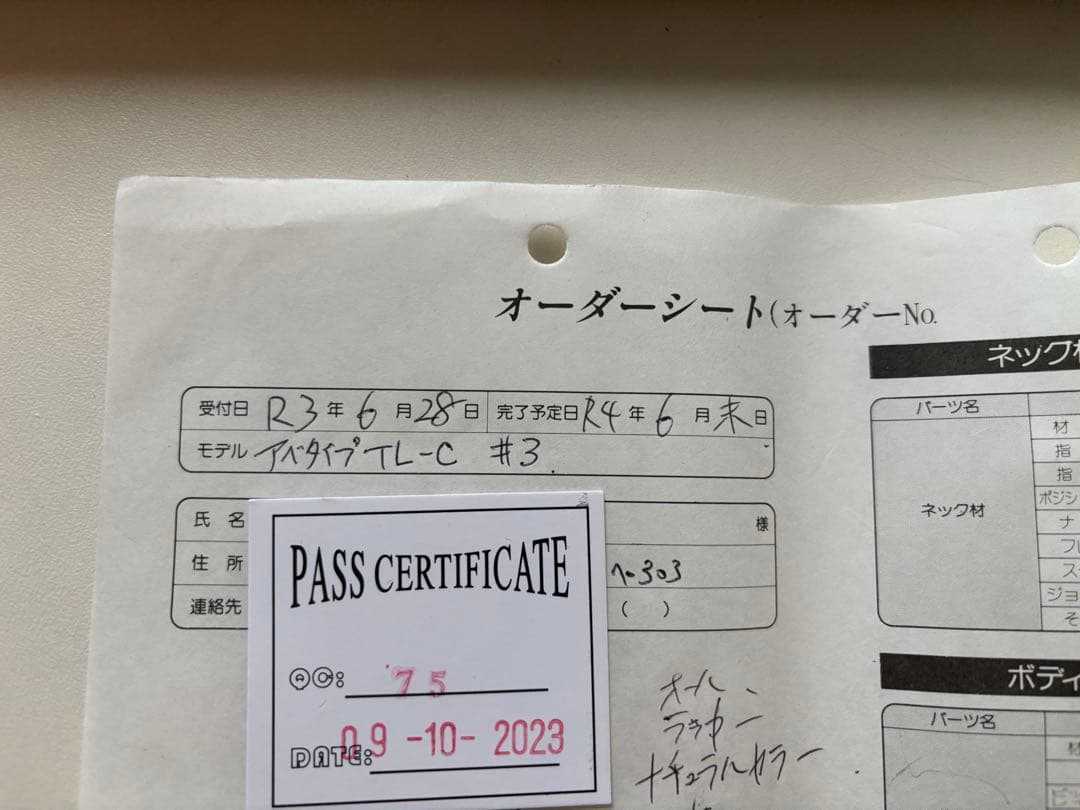 オーダーシート(オーダーNo.
受付日 R3年 6 月 28日 完了予定日 R4 年 6 月 末 日
モデル アベタイプTL-C #3
氏 名 様
住 所 303
連絡先 ( )
PASS CERTIFICATE
QC: 75
DATE: 09 -10- 2023
オール
ラッカー
ナチュラルカラー
ネック材
パーツ名
ネック材
材
指
指
ポジシ
ナ
フレ
ス
ジョ
そ
ボディ
パーツ名
材